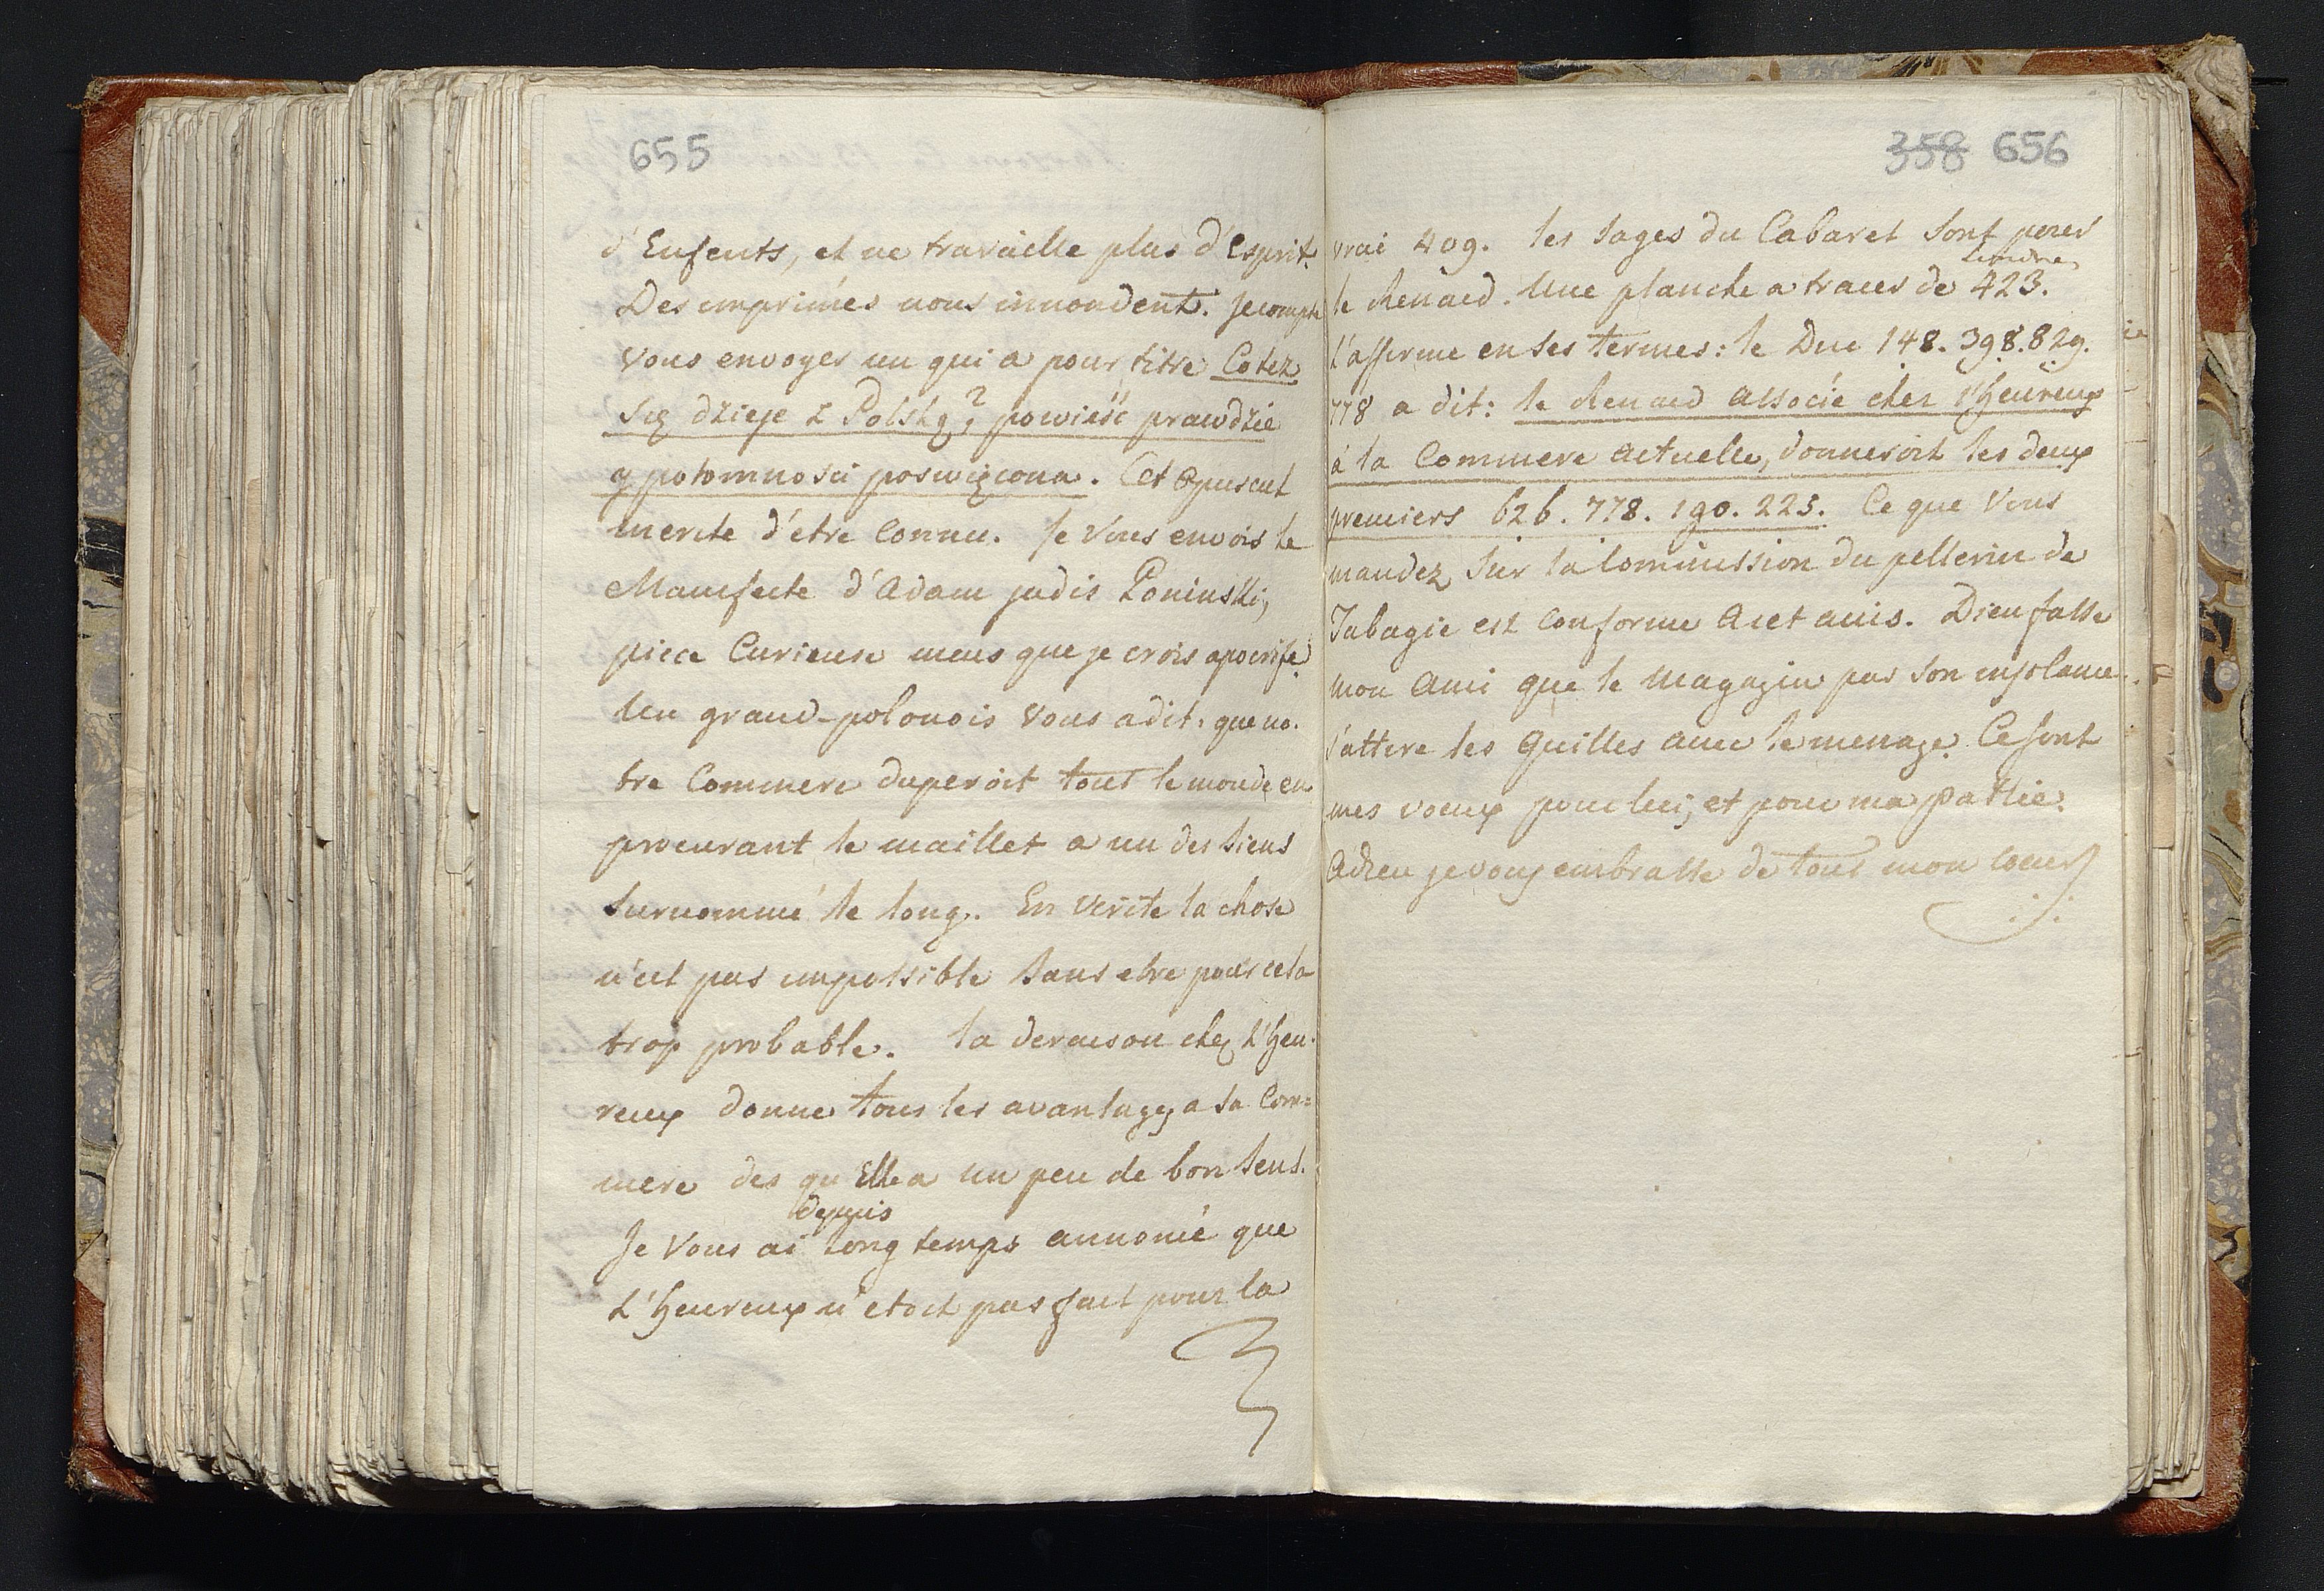 655
d'Enfents, et ne travaielle plus d'esprit.
Des imprimés nous innondent. Je compte
vous envoyer un qui a pour titre Cotez
Się dzieje z Polską? powieść prawdzie
y potomnosci poswięcona. Cet Opuscul
merite d'etre Connu. Je Vous envois le
Manifeste d'Adam jadis Poninski,
piece Curieuse mais que je crois apocrife.
Un grand-polonois vous a dit: que no-
tre Commere duperoit tout le monde en
procurant le maillet a un des siens
surnommé le long. En verité la chose
n'est pas impossible sans etre pour cela
trop probable. la deraison chez l'Heu-
reux donne tous les avantages a la Com=
mere des qu'Elle a un peu de bon sens.
depuis
Je Vous ai long temps annoncé que
L'Heureux n'etoit pas fait pour la
358 656
vrai 409. les sages du Cabaret sont pour
le Renard. Une planche a tracer de 423.
l'afferme en ses termes: le Duc 148. 398. 829.
778 a dit: le Renard associé chez l'heureux
à la Commere actuelle, donneroit les deux
premiers 626. 778. 190. 223. Ce que Vous
mandez sur la Commission du pellerin de
Tabagie est conforme a cet avis. Dieu fasse
mon Ami que le Magazin par son insolance
s'attire les Quilles avec le menage. Ce sont
mes voeux pour lui, et pour ma Patrie.
Adieu je vous embrasse de tout mon coeur